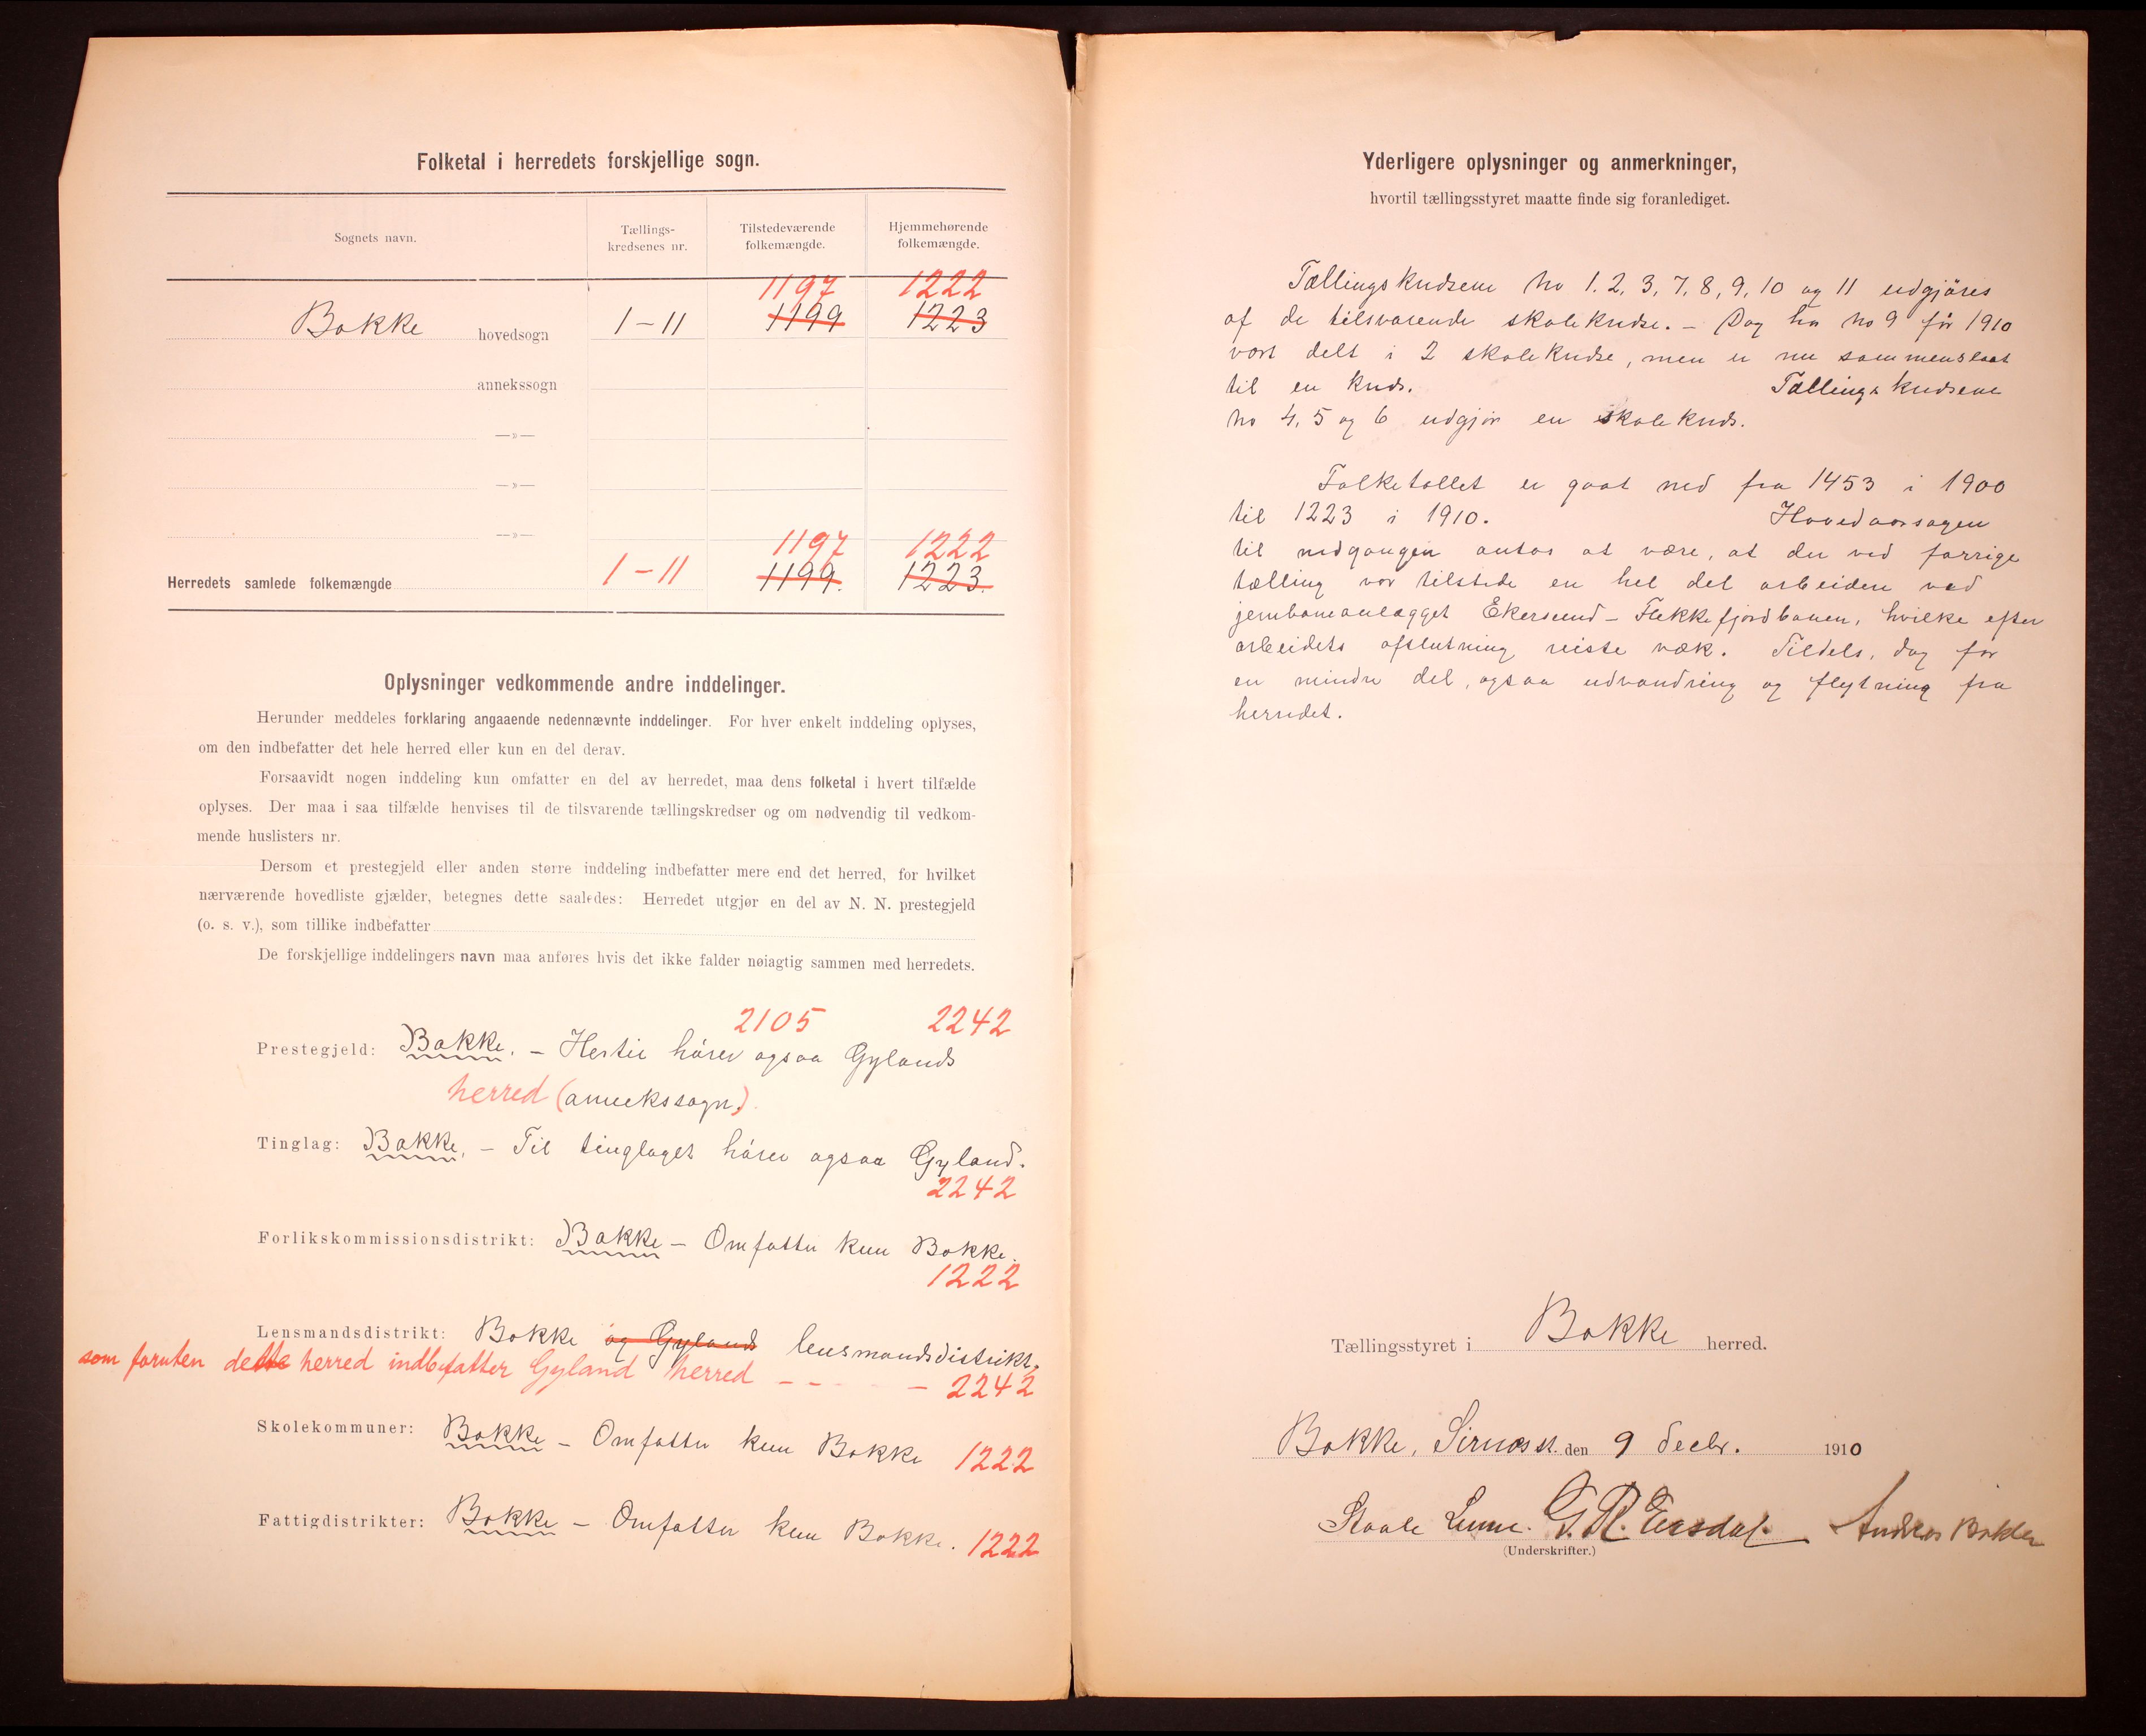 Folketal i herredets forskjellige sogn.
Sognets navn.
Tællings-
kredsenes nr.
Tilstedeværende
folkemængde.
Hjemmehørende
folkemængde.
1197 1222
Bakke hovedsogn 1-11 1199 1223
annekssogn
—»—
—»—
—»—
1197 1222
Herredets samlede folkemængde 1-11 1199. 1223.
Oplysninger vedkommende andre inddelinger.
Herunder meddeles forklaring angaaende nedennævnte inddelinger. For hver enkelt inddeling oplyses,
om den indbefatter det hele herred eller kun en del derav.
Forsaavidt nogen inddeling kun omfatter en del av herredet, maa dens folketal i hvert tilfælde
oplyses. Der maa i saa tilfælde henvises til de tilsvarende tællingskredser og om nødvendig til vedkom-
mende huslisters nr.
Dersom et prestegjeld eller anden større inddeling indbefatter mere end det herred, for hvilket
nærværende hovedliste gjælder, betegnes dette saaledes: Herredet utgjør en del av N. N. prestegjeld
(o. s. v.), som tillike indbefatter
De forskjellige inddelingers navn maa anføres hvis det ikke falder nøiagtig sammen med herredets.
2105 2242
Prestegjeld: Bakke. - Hertil hører ogsaa Gylands
herred (annekssogn.)
Tinglag: Bakke. - Til tinglaget hører ogsaa Gyland.
2242
Forlikskommissionsdistrikt: Bakke - Omfatter kun Bakke.
1222
Lensmandsdistrikt: Bakke og Gylands lensmandsdistrikt.
som foruten dette herred indbefatter Gyland herred - - - - 2242
Skolekommuner: Bakke - Omfatter kun Bakke 1222
Fattigdistrikter: Bakke - Omfatter kun Bakke. 1222
Yderligere oplysninger og anmerkninger,
hvortil tællingsstyret maatte finde sig foranlediget.
Tællingskredsene no 1. 2, 3, 7, 8, 9, 10 og 11 udgjöres
af de tilsvarende skolekredse. - Dog har no 9 før 1910
vært delt i 2 skolekredse, men er nu sammenslaat
til en kreds. Tællingskredsene
no 4, 5 og 6 udgjør en skolekreds.
Folketallet er gaat ned fra 1453 i 1900
til 1223 i 1910. Hovedaarsagen
til nedgangen antas at være, at der ved forrige
tælling var tilstede en hel del arbeidere ved
jernbaneanlægget Ekersund - Flekkefjordbanen, hvilke efter
arbeidets afslutning reiste væk. Tildels, dog for
en mindre del, ogsaa udvandring og flytning fra
herredet.
Tællingsstyret i Bakke herred.
Bakke, Sirnæs st. den 9 decbr. 1910
Staale Lunne. G. R. Eersdal. Andreas Bakken
(Underskrifter.)